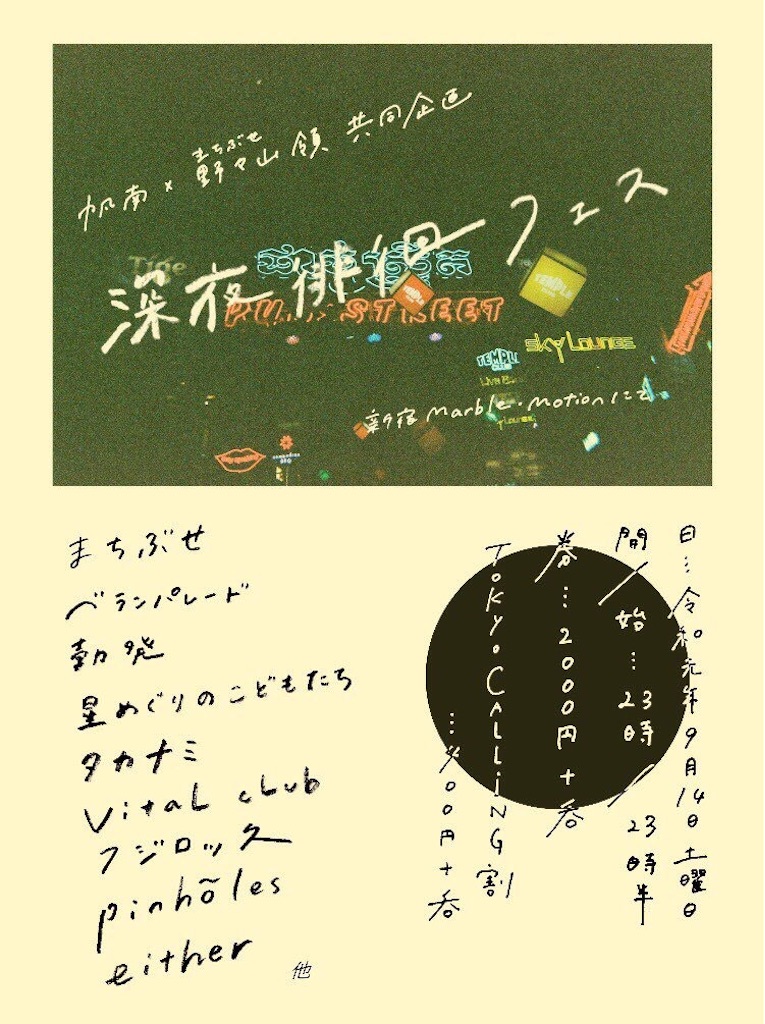 帆南×野々山領 共同企画
まちぶせ
深夜徘徊フェス
Time
PU STREET
TEMPLE
TEMPLE
Sky Lounge
TEMPLE
新宿 Marble・Motionにて
まちぶせ
ベランパレード
勃発
星めぐりのこどもたち
タカナミ
Vital club
フジロッ久
pinhõles
either
他
日…令和元年9月14日土曜日
開／始…23時／23時半
券…2000円+呑
Tokyo Calling割
…〆00円+呑